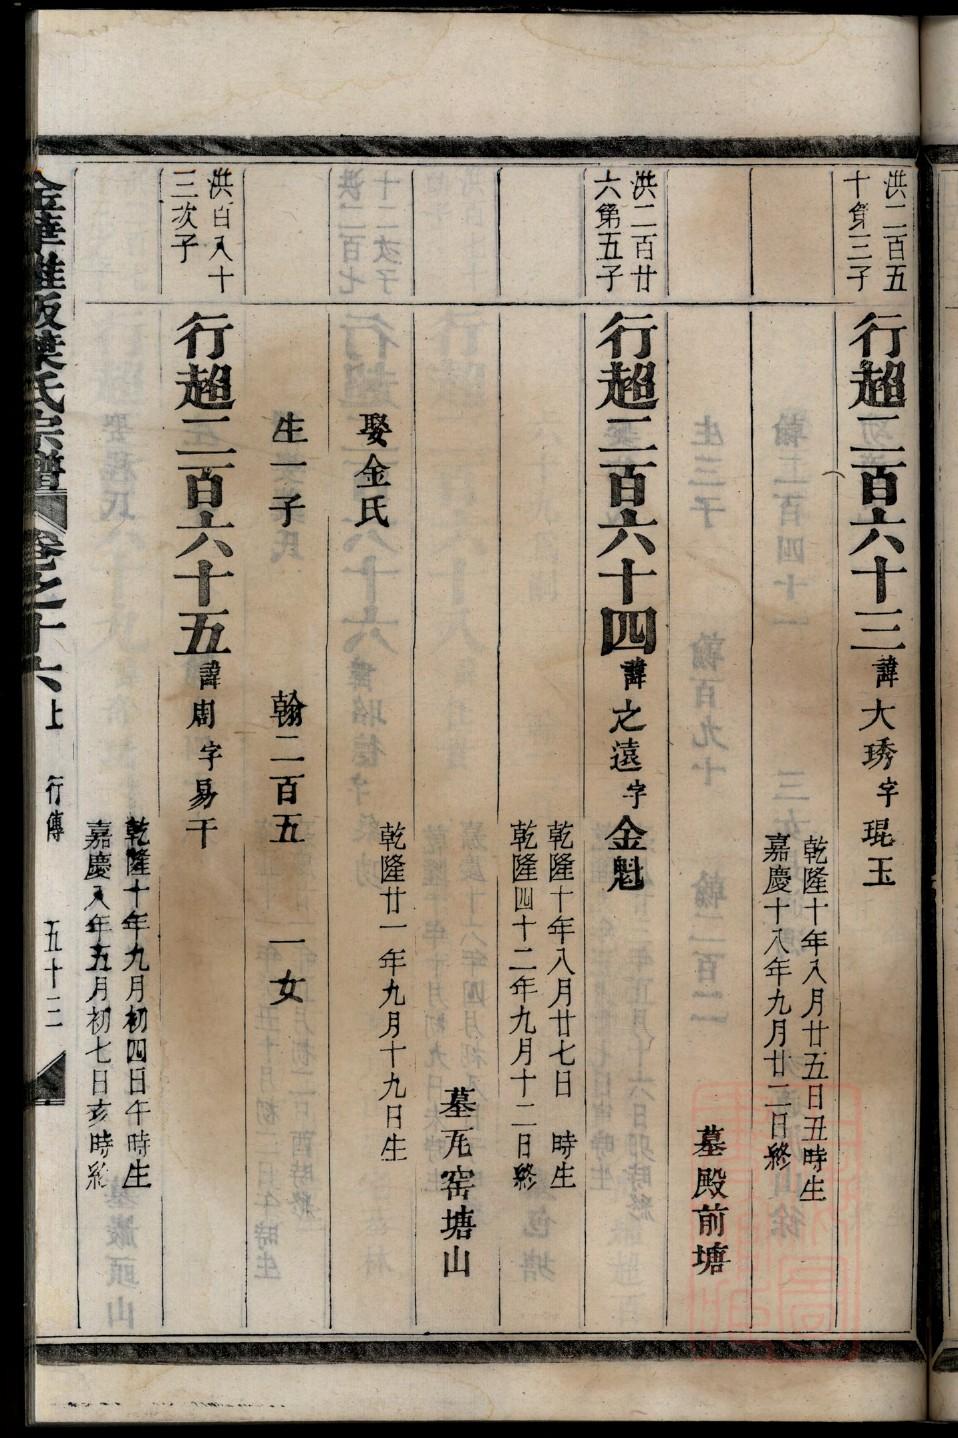 洪二百五
十第三子
行超二百六十三諱大琇字琨玉
乾隆十年八月廿五日丑時生
嘉慶十八年九月廿二日終
墓殿前塘
洪二百廿
六第五子
行超二百六十四諱之遠字金魁
乾隆十年八月廿七日 時生
乾隆四十二年九月十二日終
墓瓦窑塘山
娶金氏
乾隆廿一年九月十九日生
生一子 翰二百五 一女
洪百八十
三次子
行超二百六十五諱周字易干
乾隆十年九月初四日午時生
嘉慶八年五月初七日亥時終
葉氏宗譜 卷之十六上 行傳 五十二